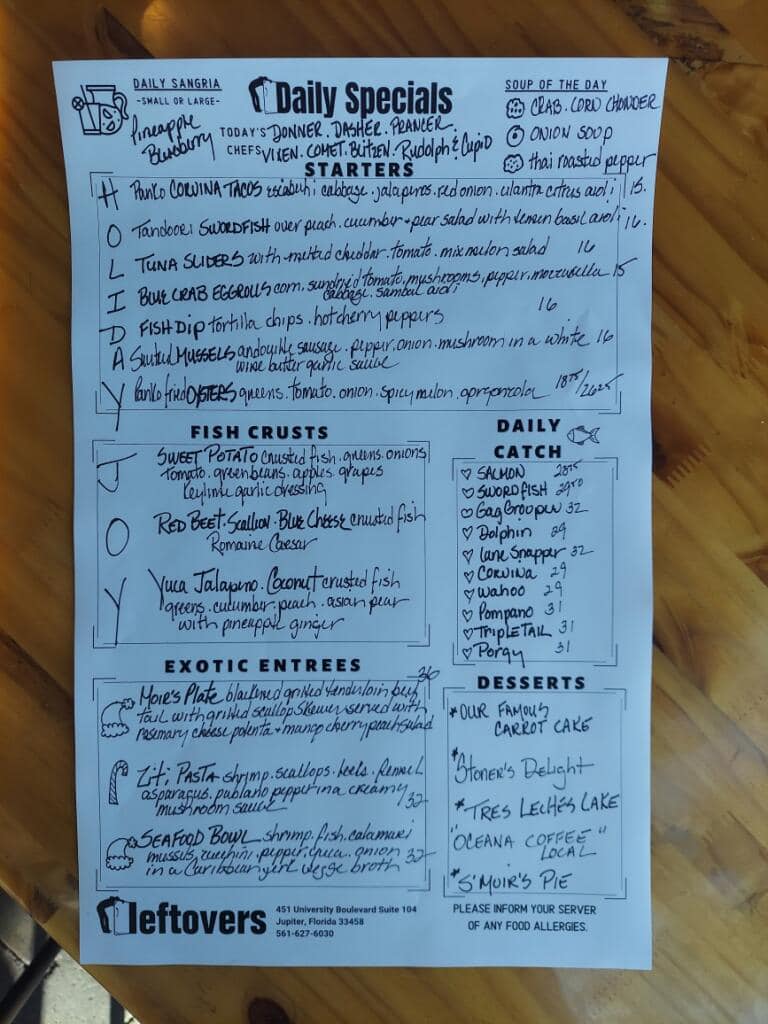 DAILY SANGRIA
-SMALL OR LARGE-
Pineapple
Blueberry
Daily Specials
TODAY'S CHEFS
DONNER. DASHER. PRANCER.
VIXEN. COMET. BLITZEN. Rudolph & Cupid
SOUP OF THE DAY
CRAB. CORN CHOWDER
ONION SOUP
thai roasted pepper
STARTERS
HOLIDAY
Panko CORVINA TACOS cabbage. jalapenos. red onion. cilantro citrus aioli 15.
Tandoori SWORDFISH over peach. cucumber + pear salad with lemon basil aioli 16.
TUNA SLIDERS with melted cheddar. tomato. mix melon salad 16
BLUE CRAB EGGROLLS corn, sundried tomato, mushrooms, pepper, mozzarella 15
cabbage. sambal aioli
FISH Dip tortilla chips. hot cherry peppers 16
Sauteed MUSSELS andouille sausage. pepper. onion. mushroom in a white 16
wine butter garlic sauce
Panko fried OYSTERS greens. tomato. onion. spicy melon. 18.75/26.25
FISH CRUSTS
JOY
SWEET POTATO crusted fish. greens. onions
tomato. greenbeans. apples. grapes
keylime garlic dressing
RED BEET. Scallion. BLUE CHEESE crusted fish
Romaine Caesar
Yuca Jalapeno. Coconut crusted fish
greens. cucumber. peach. asian pear
with pineapple ginger
DAILY
CATCH
SALMON 28.75
SWORDFISH 29.50
Gag Grouper 32
Dolphin 29
Lane Snapper 32
CORVINA 29
Wahoo 29
Pompano 31
TRIPLETAIL 31
Porgy 31
EXOTIC ENTREES
Moir's Plate blackened grilled tenderloin beef 36
tail with grilled scallop skewer served with
rosemary cheese polenta + mango cherry peach salad
Ziti PASTA shrimp. scallops. leeks. fennel
asparagus. pablano pepper in a creamy 32
mushroom sauce
SEAFOOD BOWL shrimp. fish. calamari
mussels, zucchini. pepper. yuca. onion 32
in a Caribbean veggie broth
DESSERTS
*OUR FAMOUS
CARROT CAKE
*Stoner's Delight
*TRES LECHES CAKE
"OCEANA COFFEE"
LOCAL
*S'MUIR'S PIE
leftovers
451 University Boulevard Suite 104
Jupiter, Florida 33458
561-627-6030
PLEASE INFORM YOUR SERVER
OF ANY FOOD ALLERGIES.